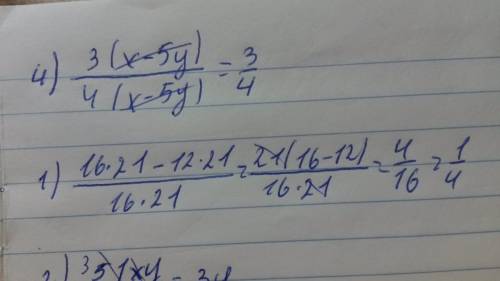 4) 3(x-5y)/4(x-5y) = 3/4
1) 16·21-12·21/16·21 = 21(16-12)/16·21 = 4/16 = 1/4